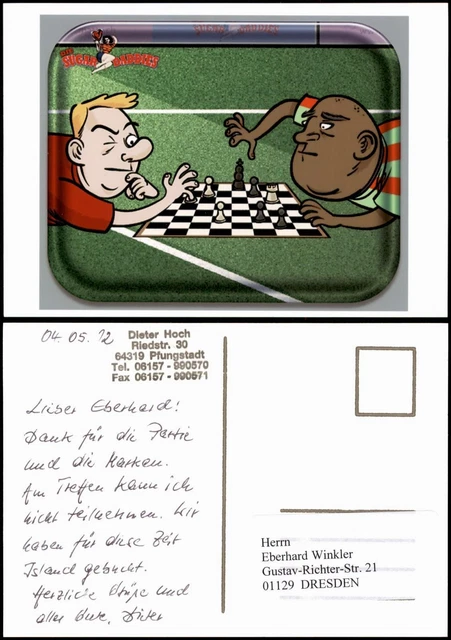 THE
SUGAR BABBIES
04.05.12
Dieter Hoch
Riedstr. 30
64319 Pfungstadt
Tel. 06157 - 990570
Fax 06157 - 990571
Lieber Eberhard!
Dank für die Partie
und die Marken.
Am Treffen kann ich
nicht teilnehmen. Wir
haben für diese Zeit
Island gebucht.
Herzliche Grüße und
alles Gute, Dieter
Herrn
Eberhard Winkler
Gustav-Richter-Str. 21
01129 DRESDEN